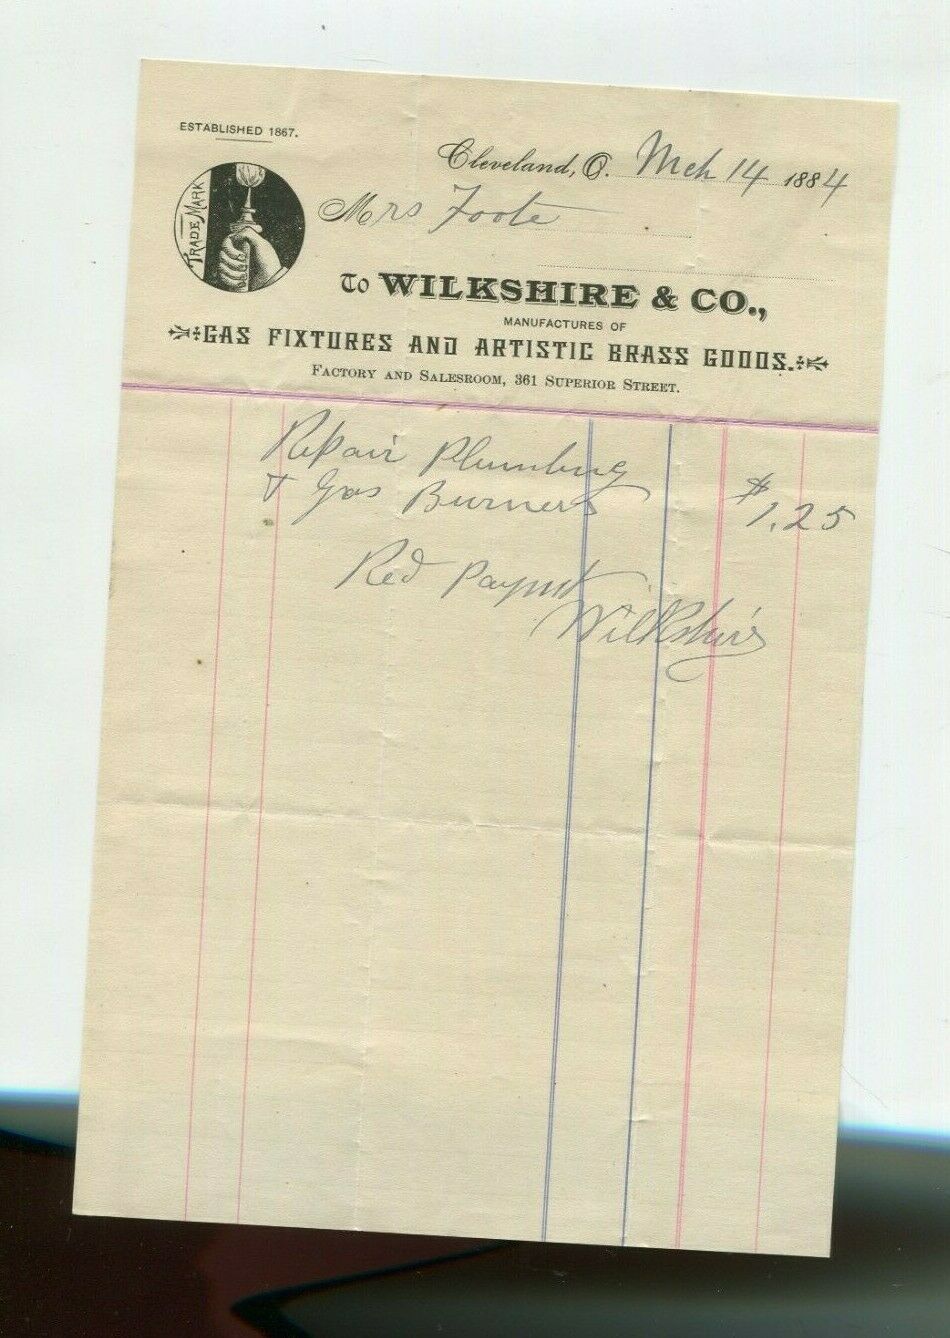 ESTABLISHED 1867.
Cleveland, O. Mch 14 1884
TRADE MARK
Mrs Foote
To WILKSHIRE & CO.,
MANUFACTURES OF
GAS FIXTURES AND ARTISTIC BRASS GOODS.
FACTORY AND SALESROOM, 361 SUPERIOR STREET.
Repair Plumbing
& Gas Burners $1.25
Recd Paymt
Wilkshire